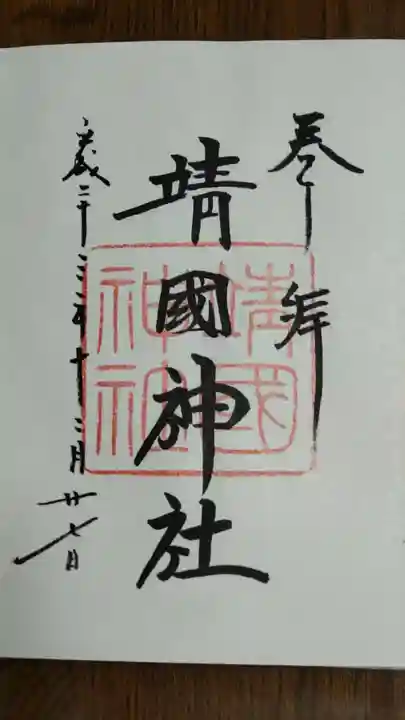 奉拝
靖國神社
靖國神社
平成二十三年十二月廿七日